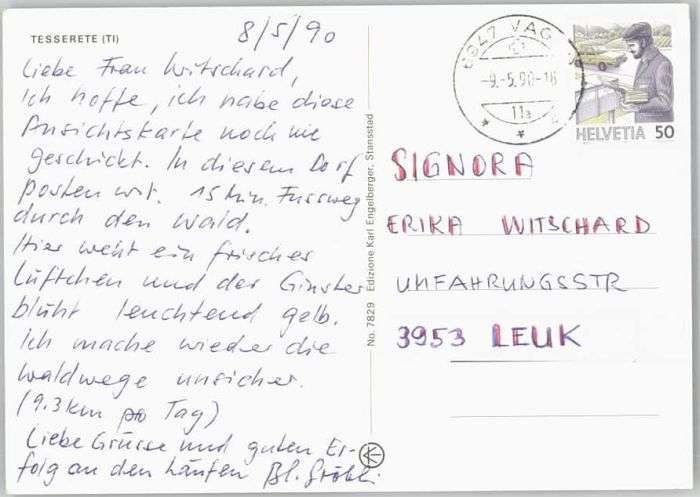 TESSERETE (TI)
8/5/90
Liebe Frau Witschard,
Ich hoffe, ich habe diese
Ansichtskarte noch nie
geschickt. In diesem Dorf
posten wir. 15 Min. Fussweg
durch den Wald.
Hier weht ein frischer
Lüftchen und der Ginster
blüht leuchtend gelb.
Ich mache wieder die
Waldwege unsicher.
(9.3 km pro Tag)
Liebe Grüsse und guten Er-
folg an den Läufen
No. 7829 Edizione Karl Engelberger, Stansstad
VAG
-9.-5.90-16
11a
HELVETIA 50
SIGNORA
ERIKA WITSCHARD
UMFAHRUNGSSTR
3953 LEUK